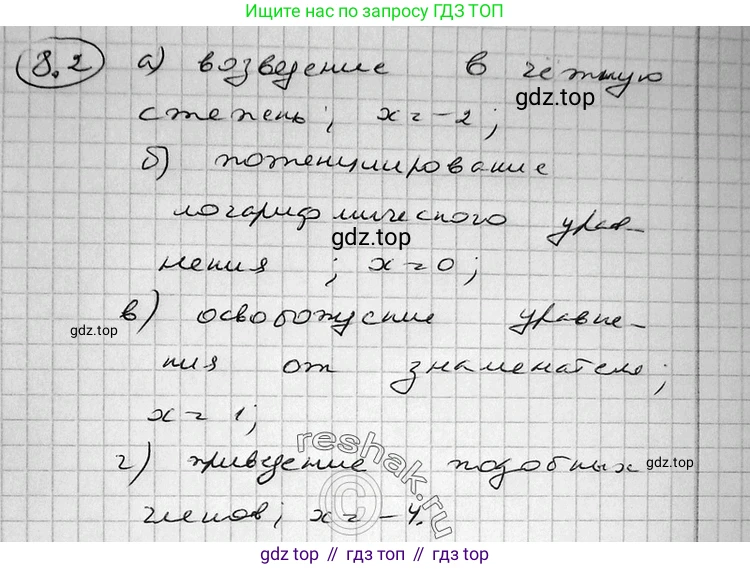 Ищите нас по запросу ГДЗ ТОП
8.2 а) возведение в чётную
gdz.top
степень; x = -2;
б) потенцирование
логарифмического урав-
gdz.top
нения ; x = 0;
в) освобождение уравне-
gdz.top
ния от знаменателя;
x = 1;
г) приведение подобных
gdz.top
членов; x = -4.
reshak.ru
©
gdz.top // гдз топ // gdz.top